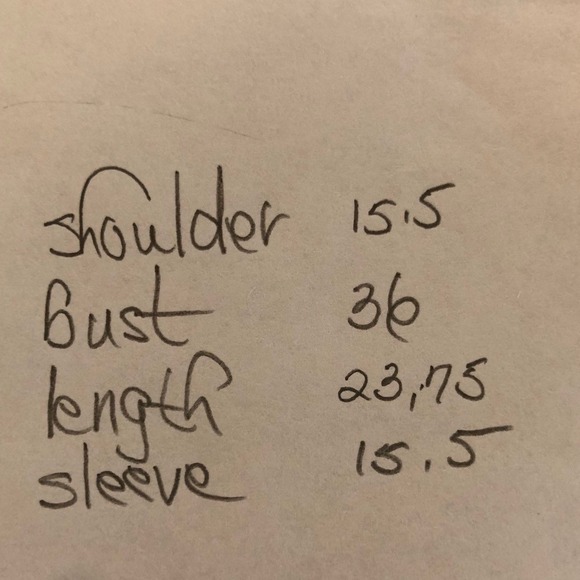 shoulder 15.5
bust 36
length 23,75
sleeve 15.5